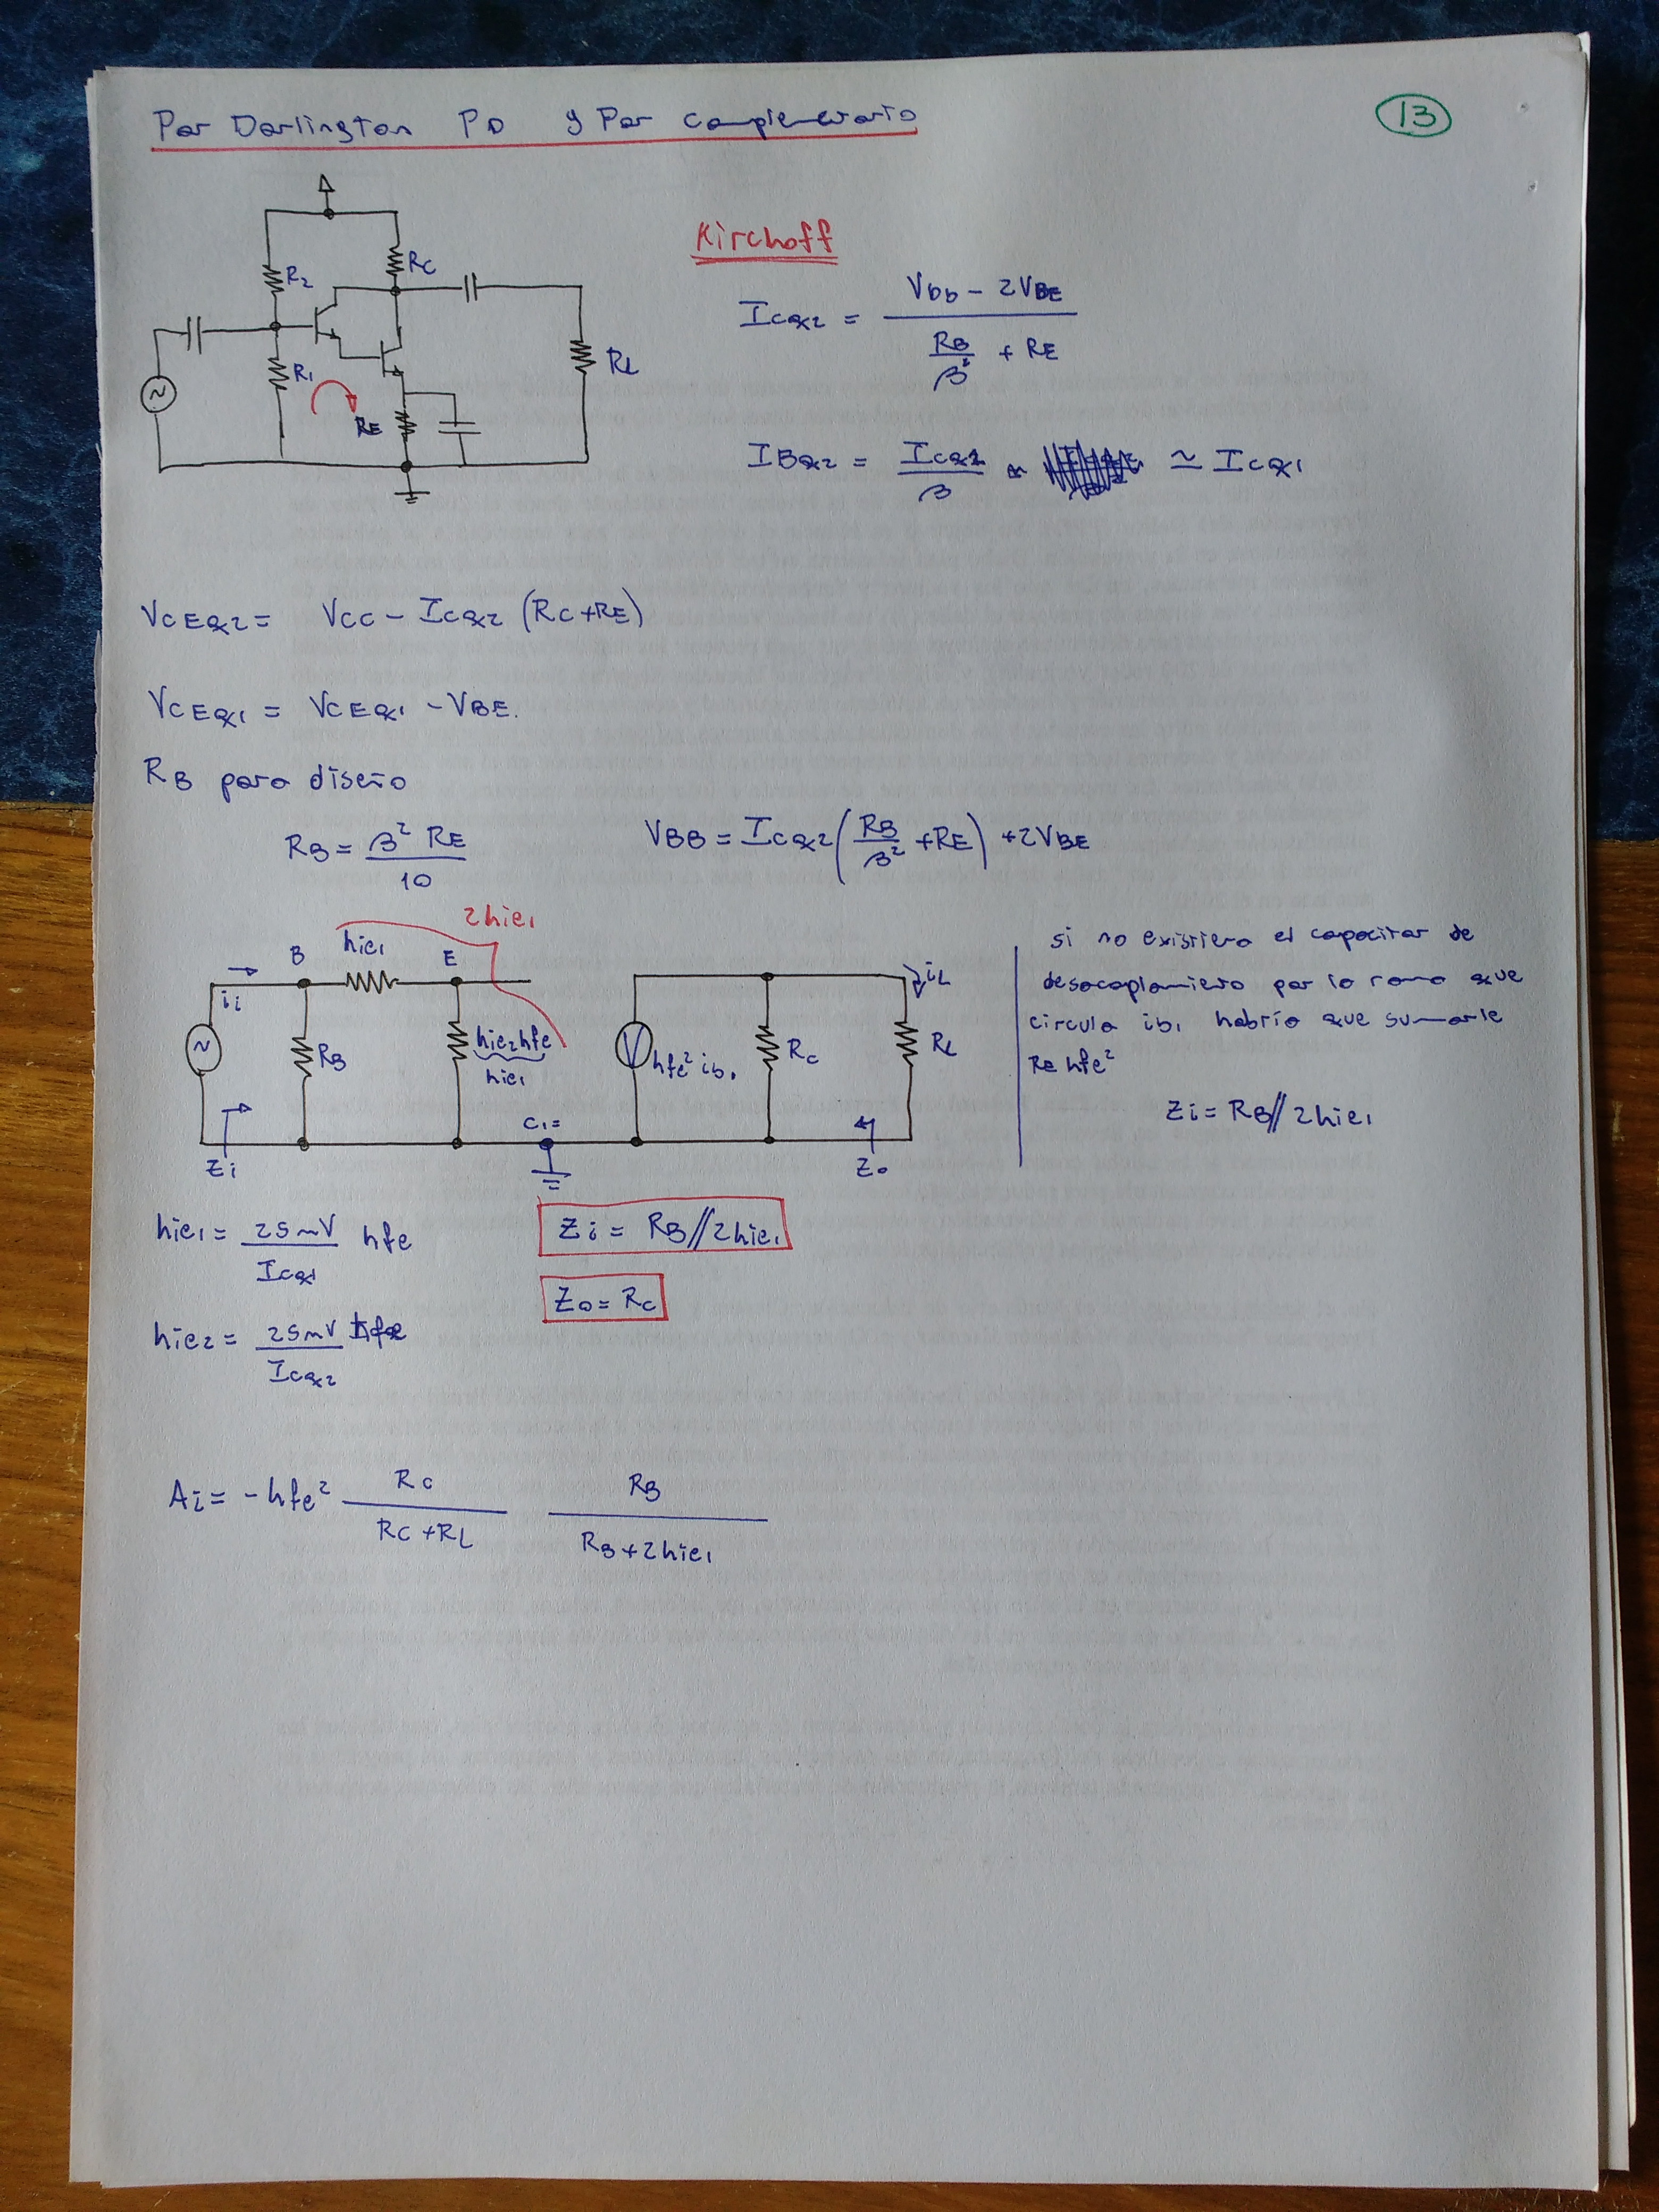 Par Darlington PD y Par complementario
13
R2
RC
R1
RE
RL
Kirchoff
ICQ2 = (Vbb - 2VBE) / (RB/β² + RE)
IBQ2 = ICQ2/β ≃ ICQ1
VCEQ2 = VCC - ICQ2 (RC+RE)
VCEQ1 = VCEQ1 - VBE.
RB para diseño
RB = β² RE / 10
VBB = ICQ2 (RB/β² + RE) + 2VBE
2hie1
B hie1 E
ii
RB
hie2hfe
hie1
hfe² ib1
RC
iL
RL
Zi
C1=
Zo
si no existiera el capacitor de
desacoplamiento por la rama que
circula ib1 habría que sumarle
RE hfe²
Zi = RB//2hie1
hie1 = 25mV/ICQ1 hfe
Zi = RB//2hie1
Zo = RC
hie2 = 25mV/ICQ2 hfe
Ai = -hfe² RC/(RC+RL) RB/(RB+2hie1)